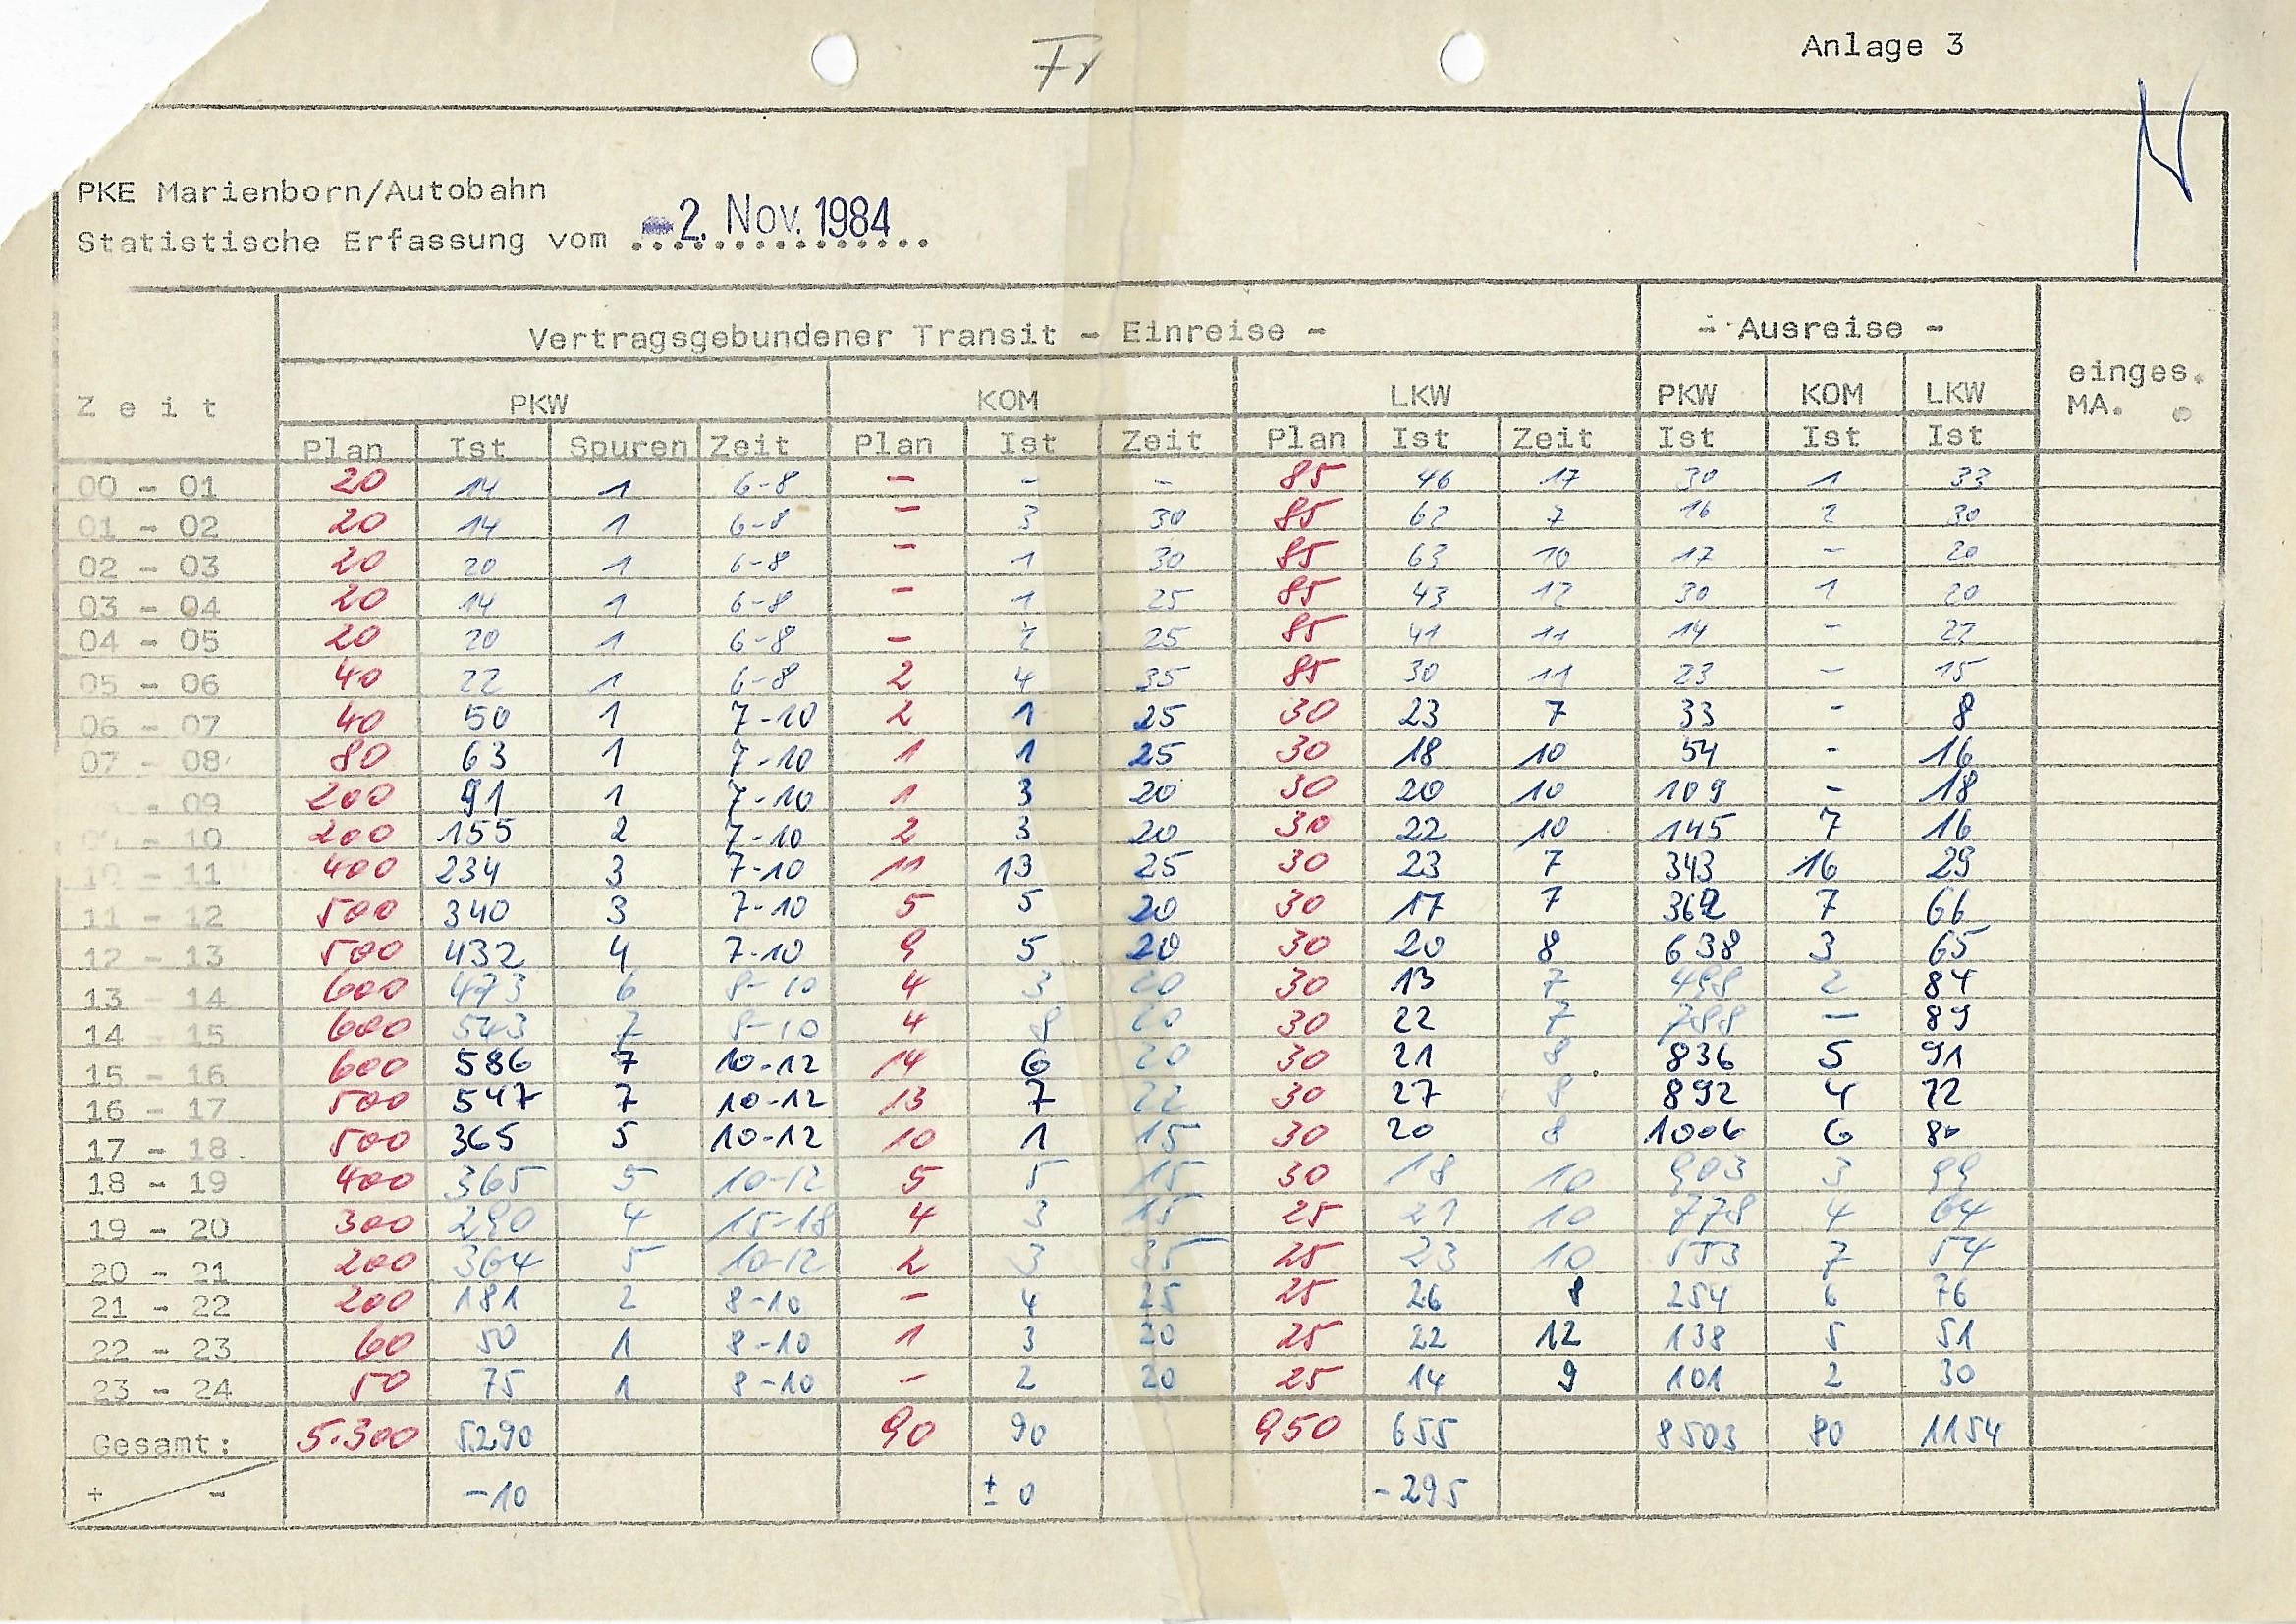 Fr
Anlage 3
N
PKE Marienborn/Autobahn
Statistische Erfassung vom -2. Nov. 1984
Zeit Vertragsgebundener Transit - Einreise - - Ausreise - einges. MA.
PKW KOM LKW PKW KOM LKW
Plan Ist Spuren Zeit Plan Ist Zeit Plan Ist Zeit Ist Ist Ist
00 - 01 20 14 1 6-8 - - - 85 46 17 30 1 33
01 - 02 20 14 1 6-8 - 3 30 85 62 7 16 2 30
02 - 03 20 20 1 6-8 - 1 30 85 63 10 17 - 20
03 - 04 20 14 1 6-8 - 1 25 85 43 12 30 1 20
04 - 05 20 20 1 6-8 - 2 25 85 41 11 14 - 22
05 - 06 40 22 1 6-8 2 4 35 85 30 11 23 - 15
06 - 07 40 50 1 7-10 2 1 25 30 23 7 33 - 8
07 - 08 80 63 1 7-10 1 1 25 30 18 10 54 - 16
- 09 200 91 1 7-10 1 3 20 30 20 10 109 - 18
- 10 200 155 2 7-10 2 3 20 30 22 10 145 7 16
10 - 11 400 234 3 7-10 11 13 25 30 23 7 343 16 29
11 - 12 500 340 3 7-10 5 5 20 30 17 7 362 7 66
12 - 13 500 432 4 7-10 9 5 20 30 20 8 638 3 65
13 - 14 600 473 6 8-10 4 3 20 30 13 7 498 2 84
14 - 15 600 543 7 8-10 4 8 20 30 22 7 788 - 89
15 - 16 600 586 7 10-12 14 6 20 30 21 8 836 5 91
16 - 17 500 547 7 10-12 13 7 22 30 27 8 892 4 72
17 - 18 500 365 5 10-12 10 1 15 30 20 8 1006 6 80
18 - 19 400 365 5 10-12 5 5 15 30 18 10 903 3 99
19 - 20 300 290 4 15-18 4 3 15 25 21 10 778 4 64
20 - 21 200 364 5 10-12 2 3 35 25 23 10 553 7 54
21 - 22 200 181 2 8-10 - 4 25 25 26 8 254 6 76
22 - 23 60 50 1 8-10 1 3 20 25 22 12 138 5 51
23 - 24 50 75 1 8-10 - 2 20 25 14 9 101 2 30
Gesamt: 5.300 5290 90 90 950 655 8503 80 1154
+ - -10 ± 0 -295